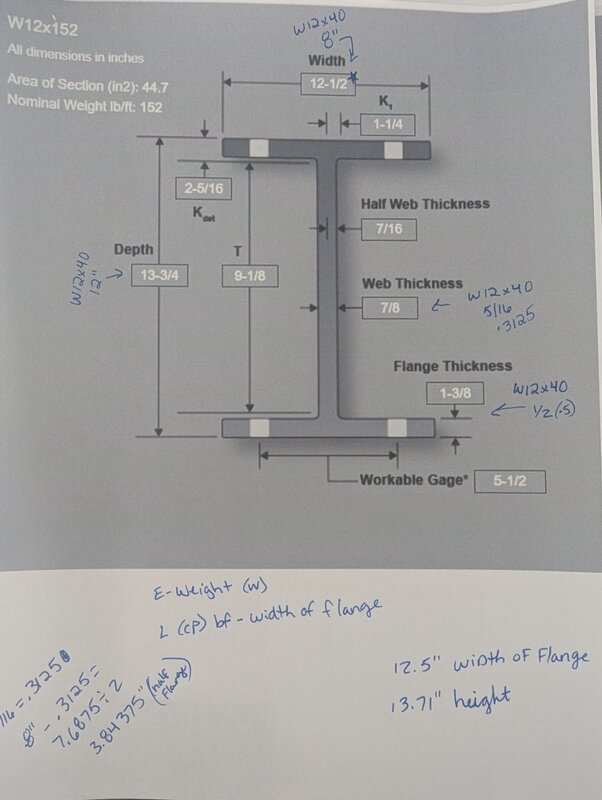 W12x152
All dimensions in inches
Area of Section (in2): 44.7
Nominal Weight lb/ft: 152
W12x40
8"
Width
12-1/2 *
K1
1-1/4
2-5/16
Kdet
Half Web Thickness
7/16
Depth
13-3/4
W12x40
12"
T
9-1/8
Web Thickness
7/8
W12x40
5/16
.3125
Flange Thickness
1-3/8
W12x40
1/2 (.5)
Workable Gage*
5-1/2
E-Weight (W)
L (CP) bf - width of flange
12.5" WIDTH OF Flange
13.71" height
/16 = .3125
8" - .3125 =
7.6875 ÷ 2
3.84375" (half Flange)